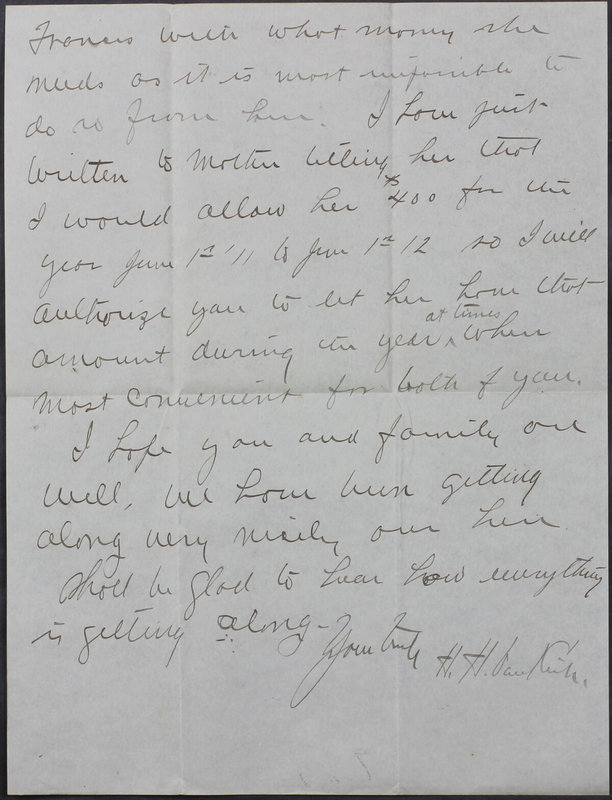 Francis with what money she
needs as it is most impossible to
do so from here. I have just
written to Mother telling her that
I would allow her $400 for the
year June 1st '11 to June 1st 12 so I will
authorize you to let her have that
amount during the year ^ at times when
most convenient for both of you.
I hope you and family are
well, we have been getting
along very nicely over here.
Shall be glad to hear how everything
is getting along-
Yours truly
H. H.